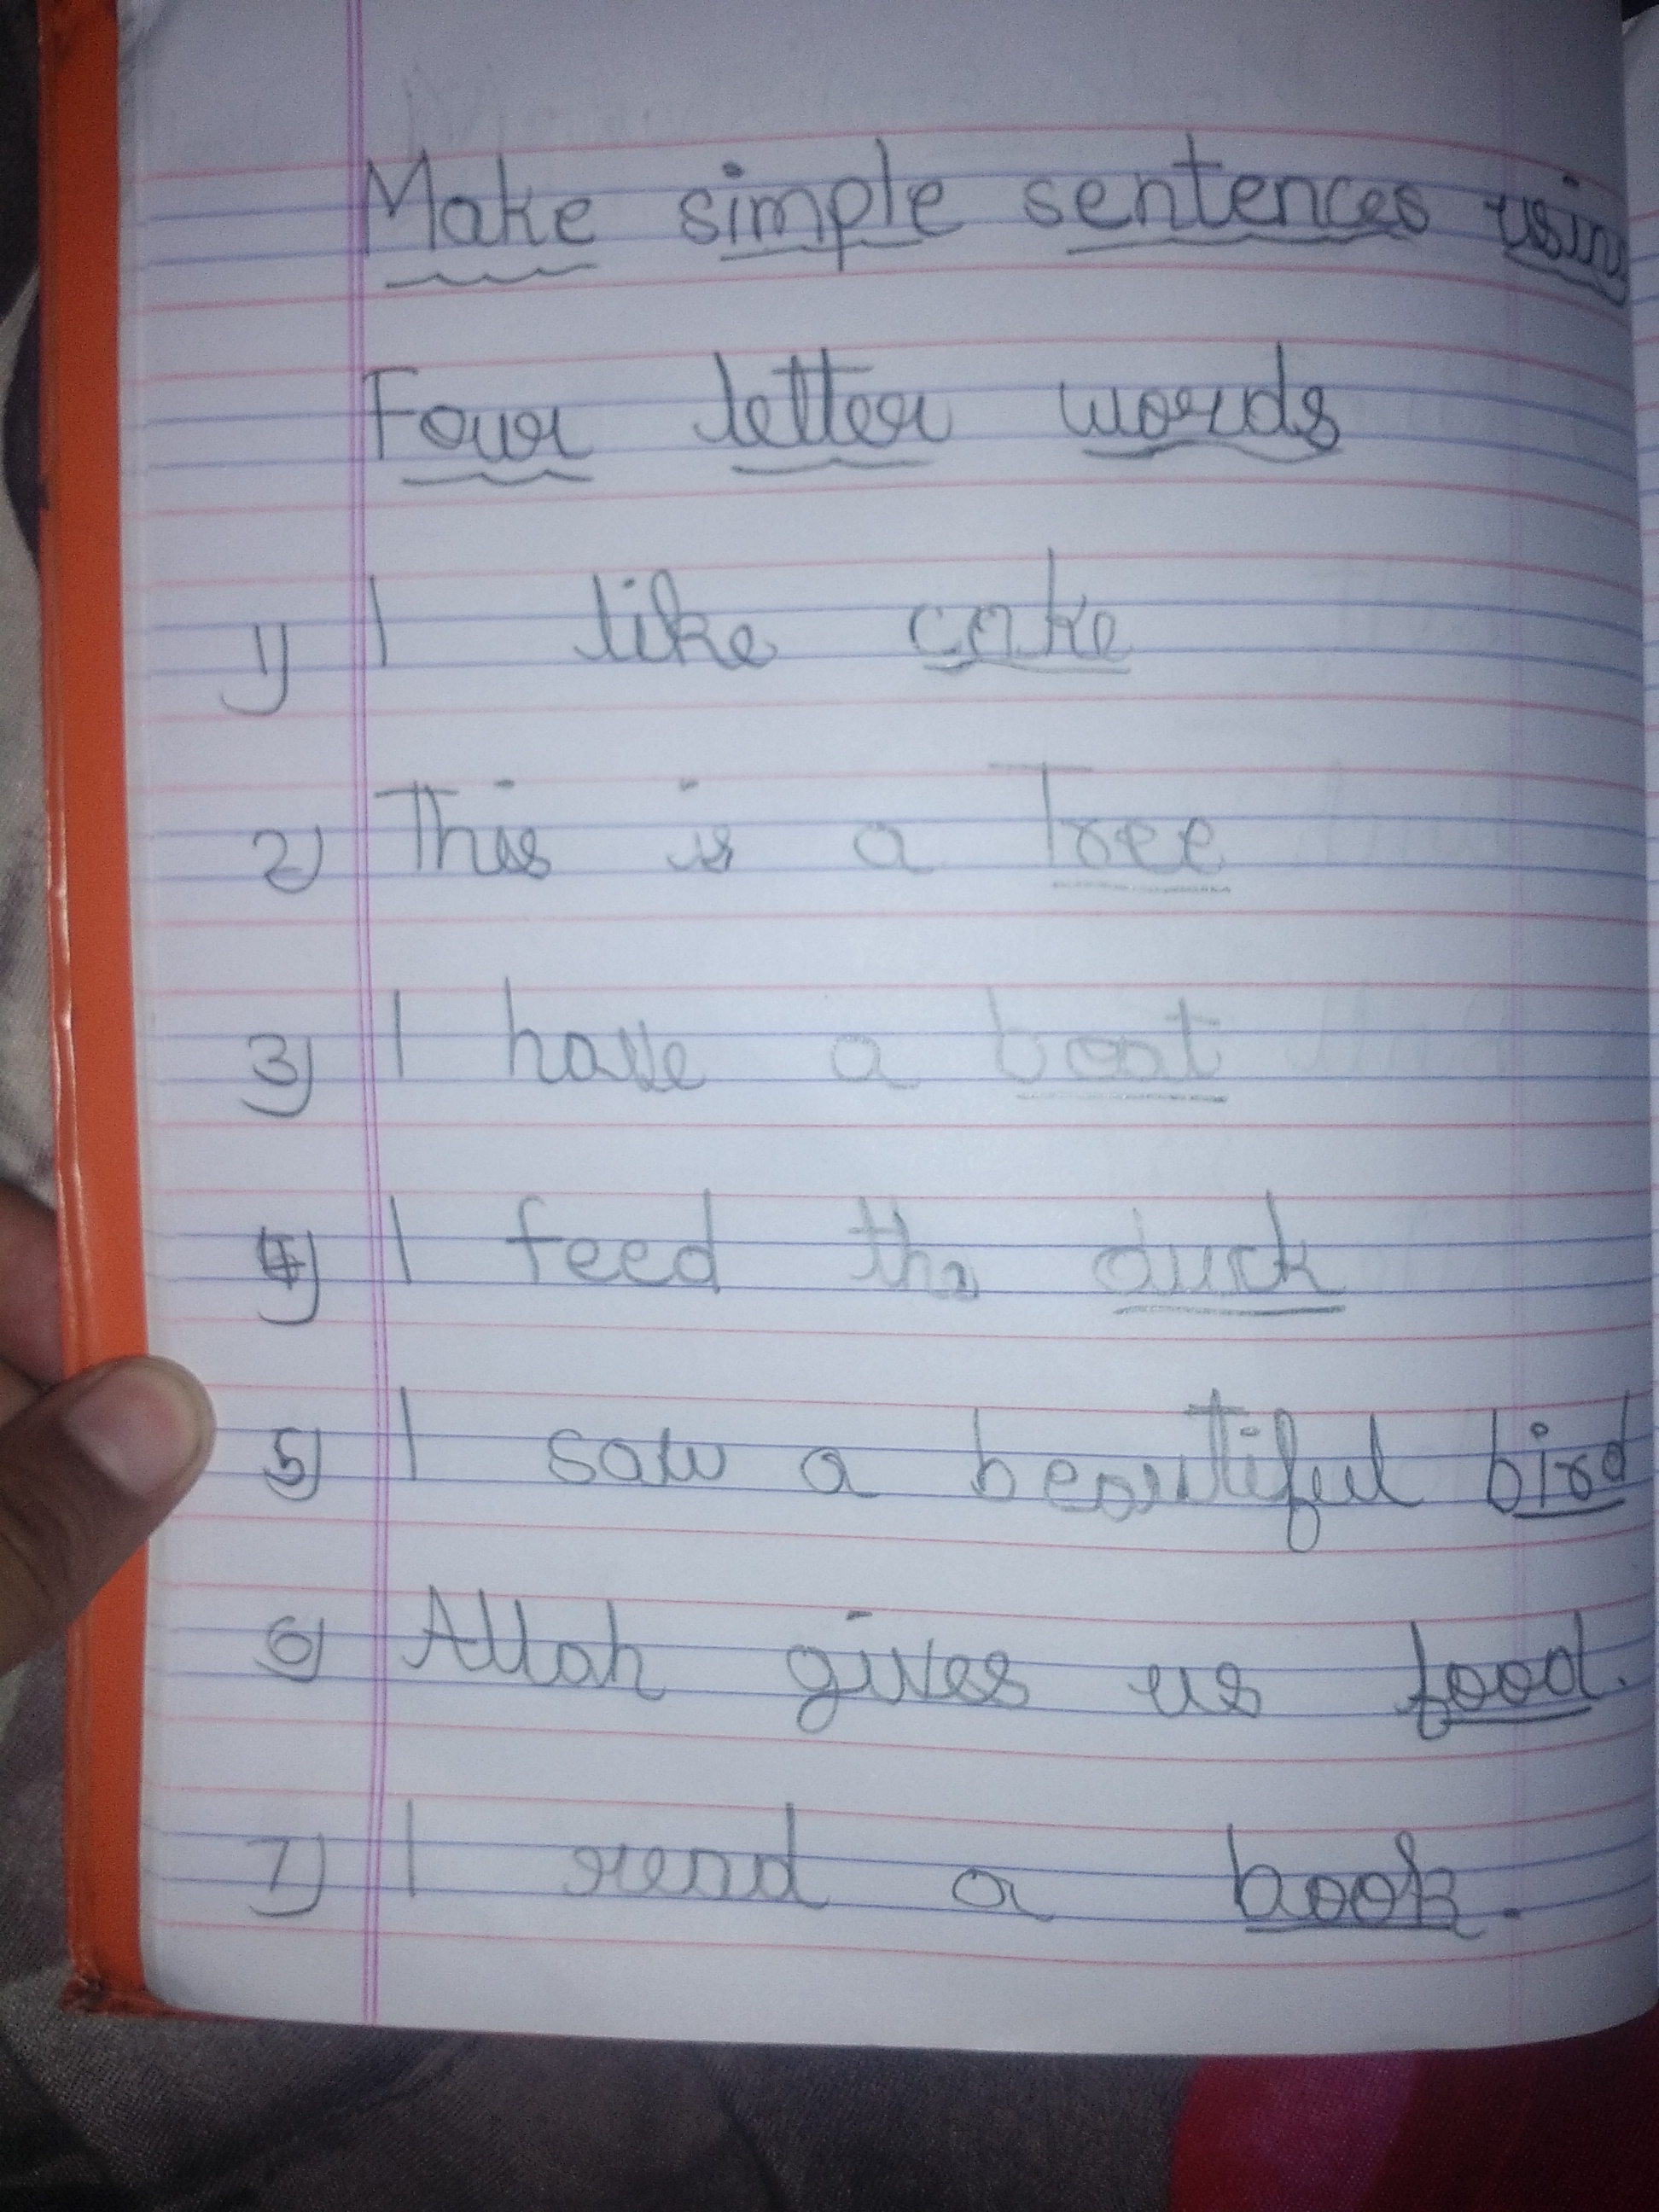 Make simple sentences using
Four letter words
1) I like cake
2) This is a Tree
3) I have a boat
4) I feed the duck
5) I saw a beautiful bird
6) Allah gives us food.
7) I read a book.